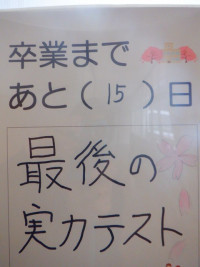 卒業まで
あと（15）日
最後の
実力テスト